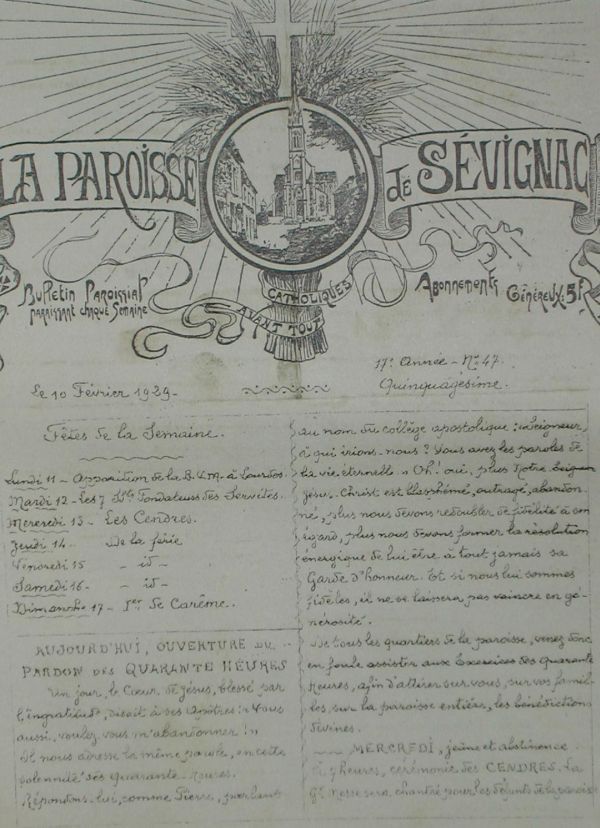 LA PAROISSE de SÉVIGNAC
Bulletin Paroissial
paraissant chaque Semaine
CATHOLIQUES
AVANT TOUT
Abonnements
Généreux: 5F
17e Année - No 47.
Le 10 Février 1929.
Quinquagésime.
Fêtes de la Semaine.
Lundi 11 - Apparition de la B.V.M. à Lourdes.
Mardi 12 - Les 7 Sts Fondateurs des Servites.
Mercredi 13 - Les Cendres.
Jeudi 14. De la férie
Vendredi 15 - id -
Samedi 16 - - id -
Dimanche 17 - 1er de Carême.
AUJOURD'HUI, OUVERTURE DU
PARDON DES QUARANTE HEURES
Un jour, le Cœur de Jésus, blessé par
l'ingratitude, disait à ses Apôtres: "Vous
aussi, voulez-vous m'abandonner!"
Il nous adresse la même parole, en cette
solennité des Quarante-Heures.
Répondons-lui, comme Pierre, parlant
au nom du collège apostolique: "Seigneur,
à qui irions-nous? Vous avez les paroles de
la vie éternelle" Oh! oui, plus Notre Seigneur
Jésus-Christ est blasphémé, outragé, abandon-
né, plus nous devons redoubler de fidélité à son
égard, plus nous devons former la résolution
énergique de lui être à tout jamais sa
Garde d'honneur. Et si nous lui sommes
fidèles, il ne se laissera pas vaincre en gé-
nérosité.
De tous les quartiers de la paroisse, venez donc
en foule assister aux Exercices des Quarante
Heures, afin d'attirer sur vous, sur vos famil-
les, sur la paroisse entière, les bénédictions
divines.
MERCREDI, jeûne et abstinence
heures, cérémonie des CENDRES. La
Gd Messe sera chantée pour les défunts de la paroisse